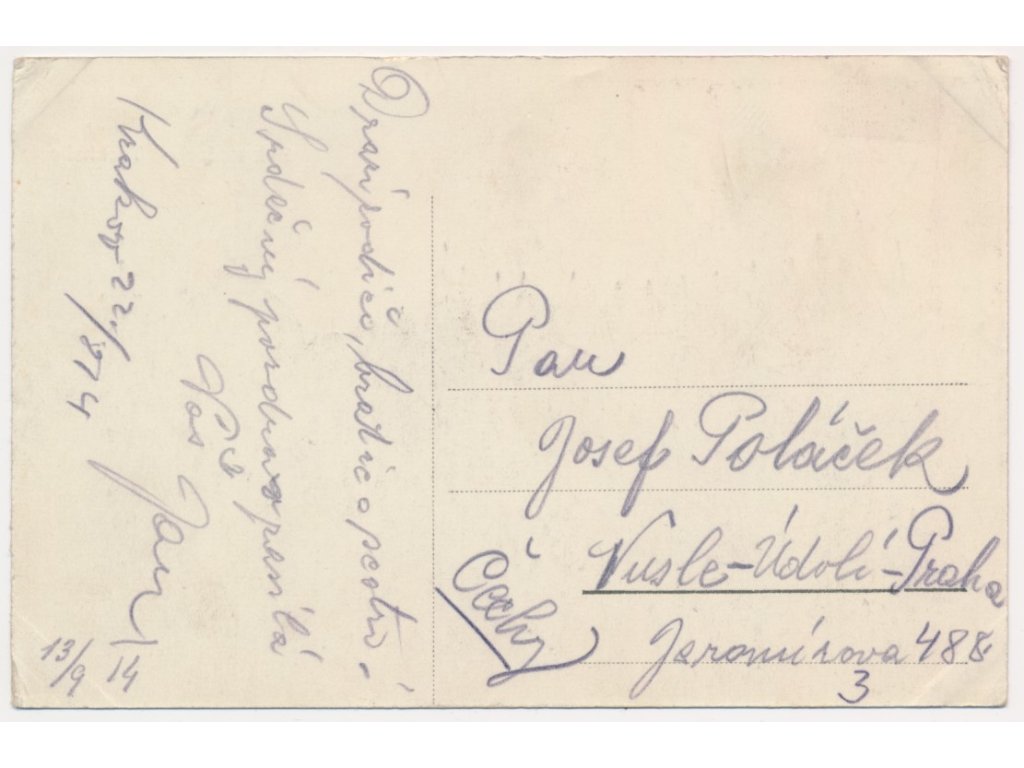 Drazí rodiče, bratře a sestro.
Srdečný pozdrav posílá
Váš
Jan
Krakov 22./8 14
13/9 14
Pan
Josef Poláček
Nusle-Údolí-Praha
Jaromírova 488
3
Čechy